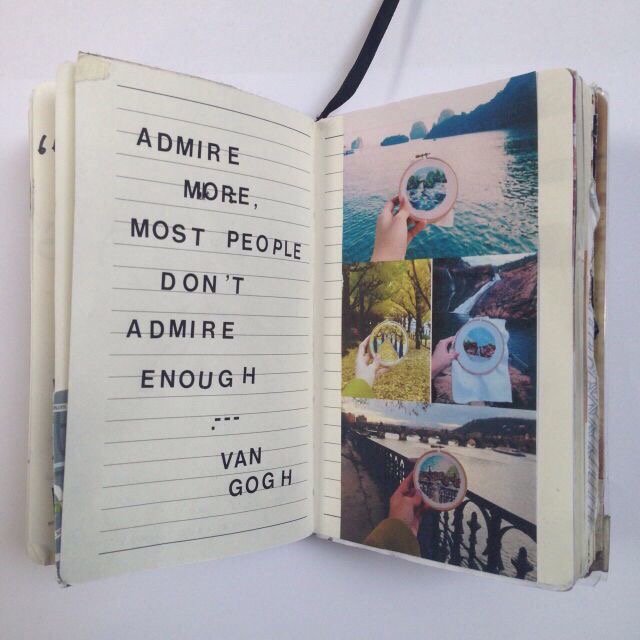 “
ADMIRE
MORE,
MOST PEOPLE
DON'T
ADMIRE
ENOUGH
.---
VAN
GOGH